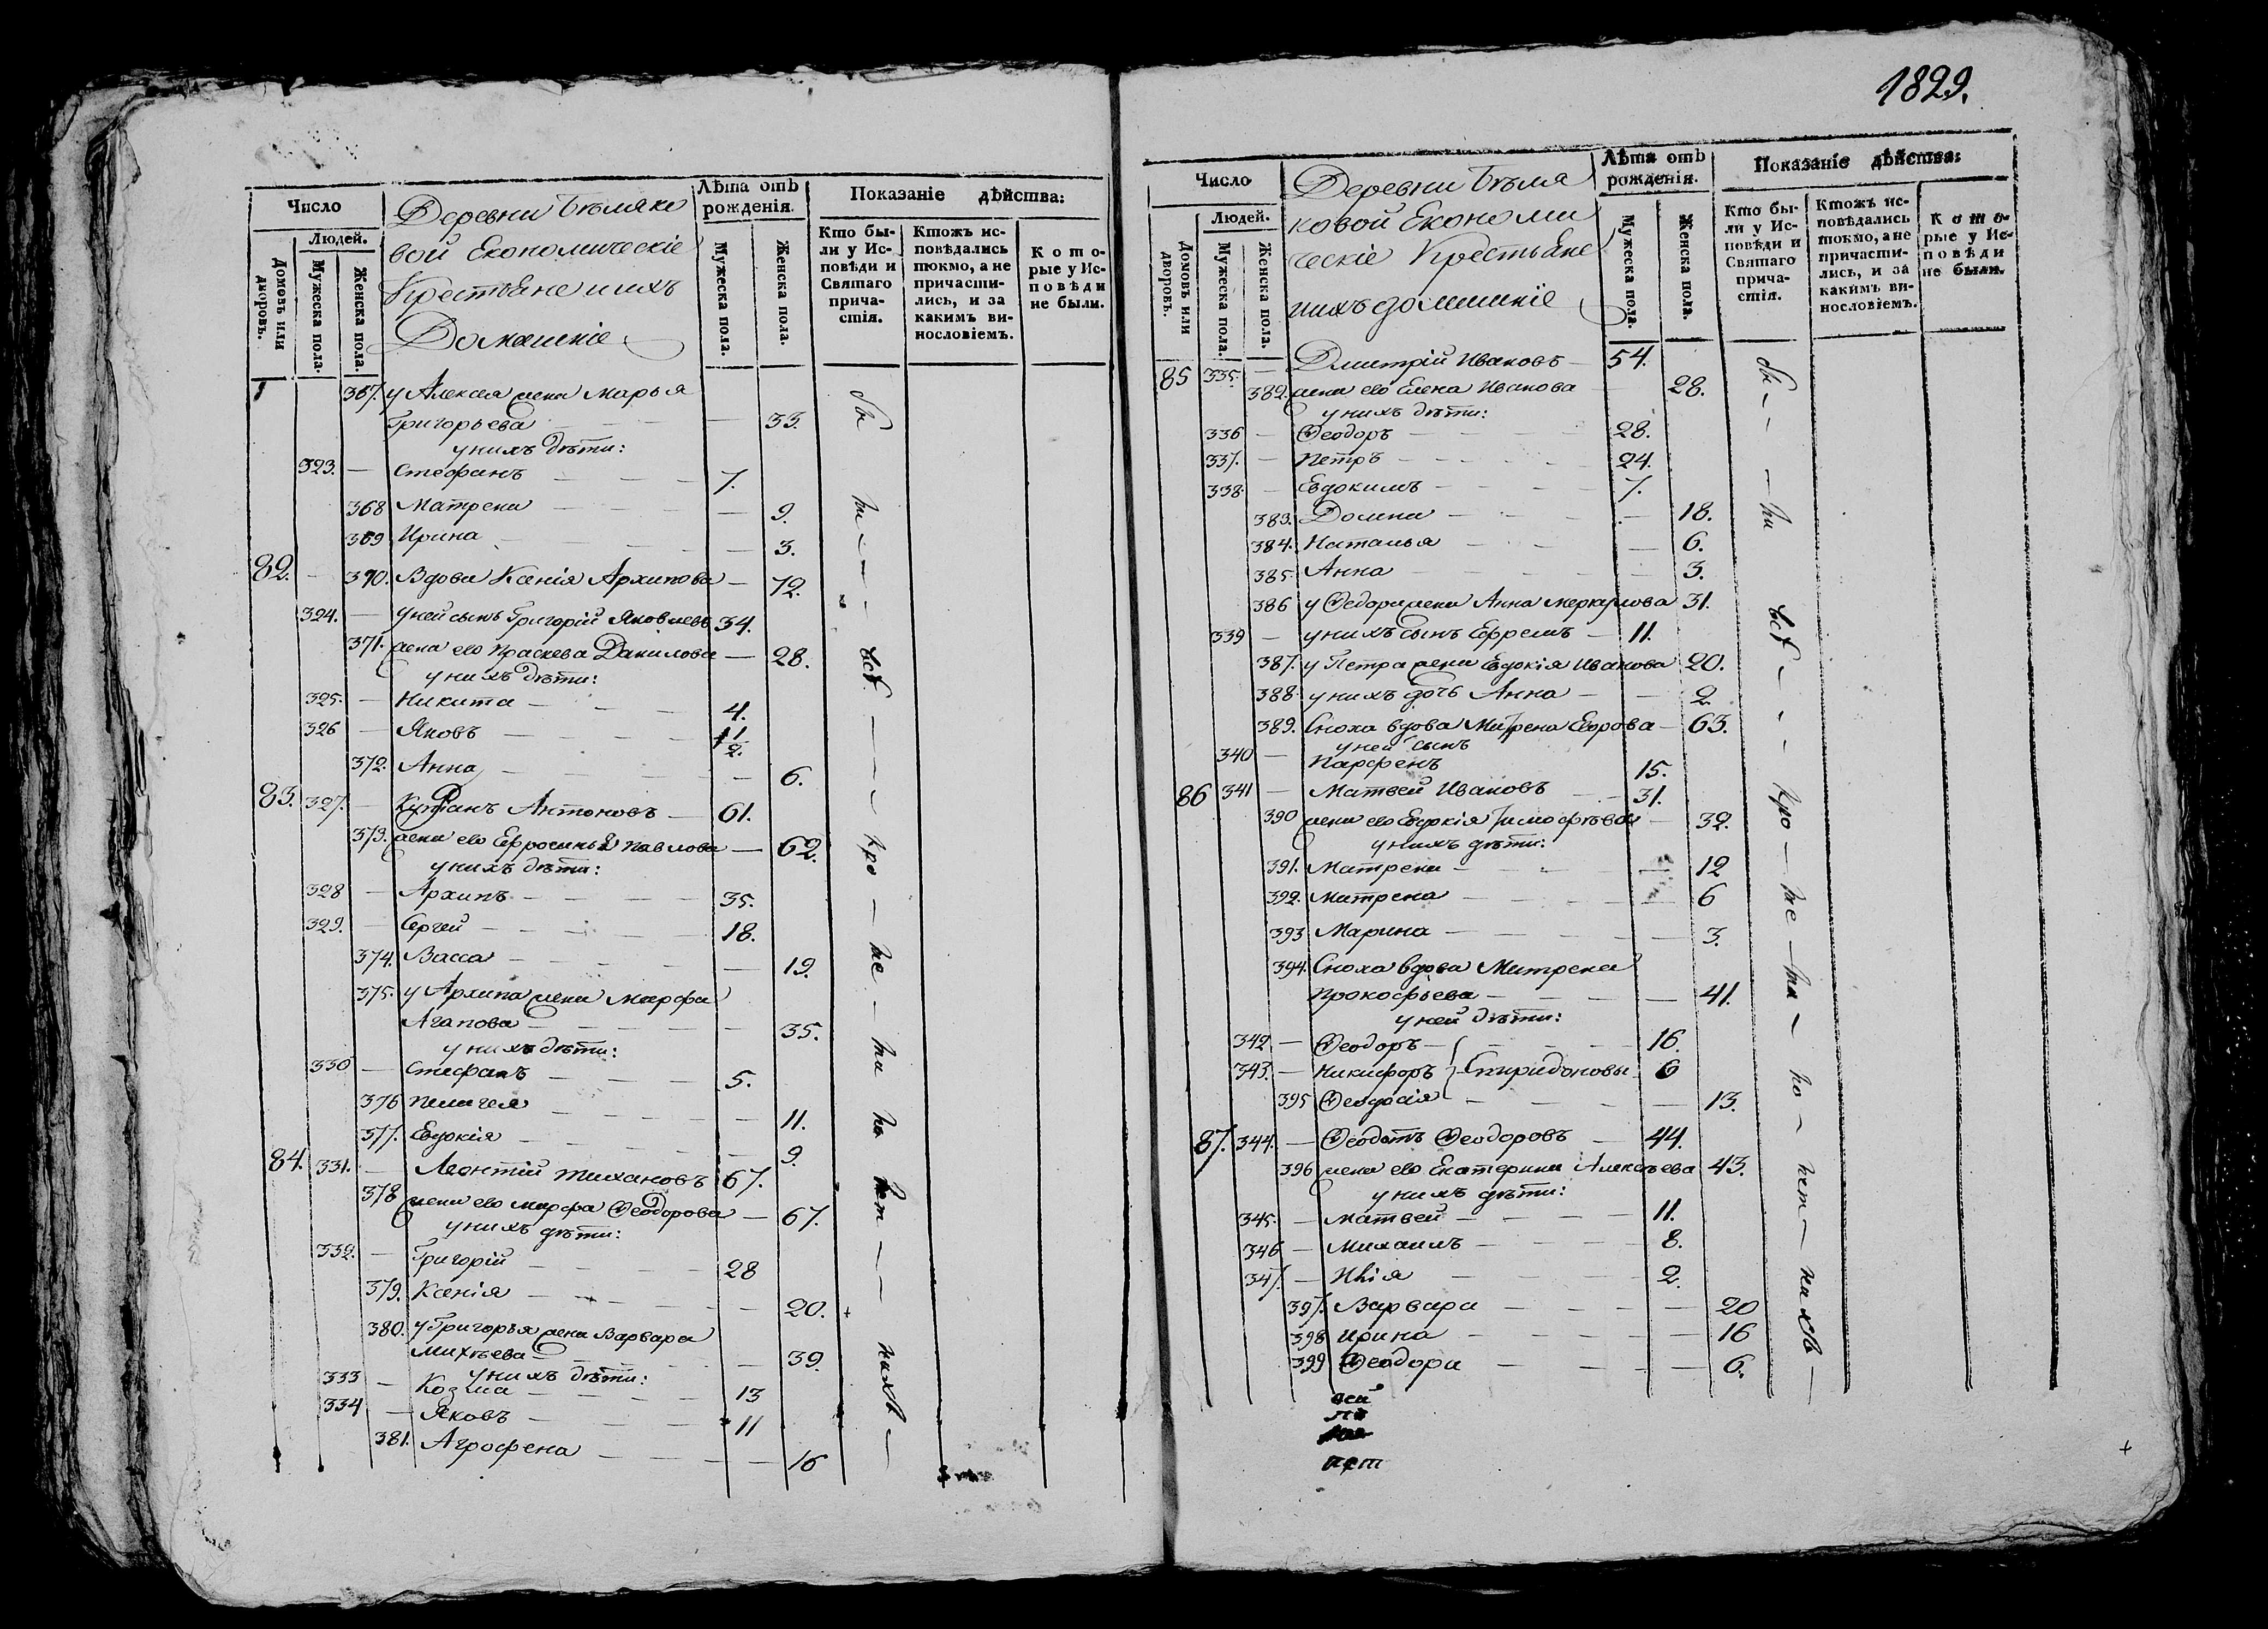 1829.
Число
Людей.
Домовъ или дворовъ.
Мужеска пола.
Женска пола.
Деревни Бѣляко
вой Економическіе
Крестьяне и ихъ
Домашніе
Лѣта отъ рожденія.
Мужеска пола.
Женска пола.
Показаніе дѣйства:
Кто бы-
ли у Ис-
повѣди и
Святаго
прича-
стія.
Ктожъ ис-
повѣдались
токмо, а не
причасти-
лись, и за
какимъ ви-
нословіемъ.
К о т о-
рые у Ис-
п о в ѣ д и
не были.
367. у Алексея жена Марья
Григорьева — 33.
у нихъ дѣти:
323. — Стефанъ — 7.
368 Матрена — 9.
369 Ирина — 3.
82. — 370. Вдова Ксенія Архипова — 72.
324. — у ней сынъ Григорій Яковлевъ 34.
371. жена его Праскева Данилова — 28.
у нихъ дѣти:
325. — Никита — 4.
326 — Яковъ — 1/2.
372. Анна — 6.
83. 327. — Антоновъ — 61.
373. жена его Ефросинья Павлова — 62.
у нихъ дѣти:
328 — Архипъ — 35.
329. — Сергей — 18.
374. Васса — 19.
375. у Архипа жена Марфа
Агапова — 35.
у нихъ дѣти:
330 — Стефанъ — 5.
376 Пелагея — 11.
377. Евдокія — 9.
84. 331. — Леонтій Тихановъ 67.
378 жена его Марфа Ѳеодорова — 67.
у нихъ дѣти:
332. — Григорій — 28
379. Ксенія — 20.
380. у Григорья жена Варвара
Михѣева — 39.
у нихъ дѣти:
333 — Козма — 13
334 — Яковъ — 11
381. Агрофена — 16
всѣ
Число
Людей.
Домовъ или дворовъ.
Мужеска пола.
Женска пола.
Деревни Бѣля
ковой Економи
ческіе Крестьяне
и ихъ домашніе
Лѣта отъ рожденія.
Мужеска пола.
Женска пола.
Показаніе дѣйства:
Кто бы-
ли у Ис-
повѣди и
Святаго
прича-
стія.
Ктожъ ис-
повѣдались
токмо, а не
причасти-
лись, и за
какимъ ви-
нословіемъ.
К о т о-
рые у Ис-
п о в ѣ д и
не были.
85 335. — Дмитрій Ивановъ — 54.
382. жена его Елена Иванова — 28.
у нихъ дѣти:
336 — Ѳеодоръ — 28.
337. — Петръ — 24.
338. — Евдокимъ — 7.
383. Домна — 18.
384. Наталья — 6.
385. Анна — 3.
386 у Ѳедора жена Анна Меркулова 31.
339 — у нихъ сынъ Ефремъ — 11.
387. у Петра жена Евдокія Иванова 20.
388. у нихъ дочь Анна — 2.
389. Сноха вдова Матрена Егорова — 63.
у ней сынъ
340 — Парфенъ 15.
86 341 — Матвей Ивановъ — 31.
390 жена его Евдокія Тимофѣева — 32.
у нихъ дѣти:
391. Матрена — 12
392. Матрена — 6
393 Марина — 3.
394. Сноха вдова Матрена
Прокофьева — 41.
у ней дѣти:
342 — Ѳеодоръ — 16.
343. — Никифоръ } Спиридоновы 6
395 Ѳеодосія — 13.
87. 344. — Ѳеодотъ Ѳеодоровъ — 44.
396 жена его Екатерина Алексѣева 43.
у нихъ дѣти:
345. — Матвей — 11.
346 — Михаилъ — 8.
347. — Илія — 2.
397. Варвара — 20
398 Ирина — 16
399 Ѳеодора — 6.
всѣ